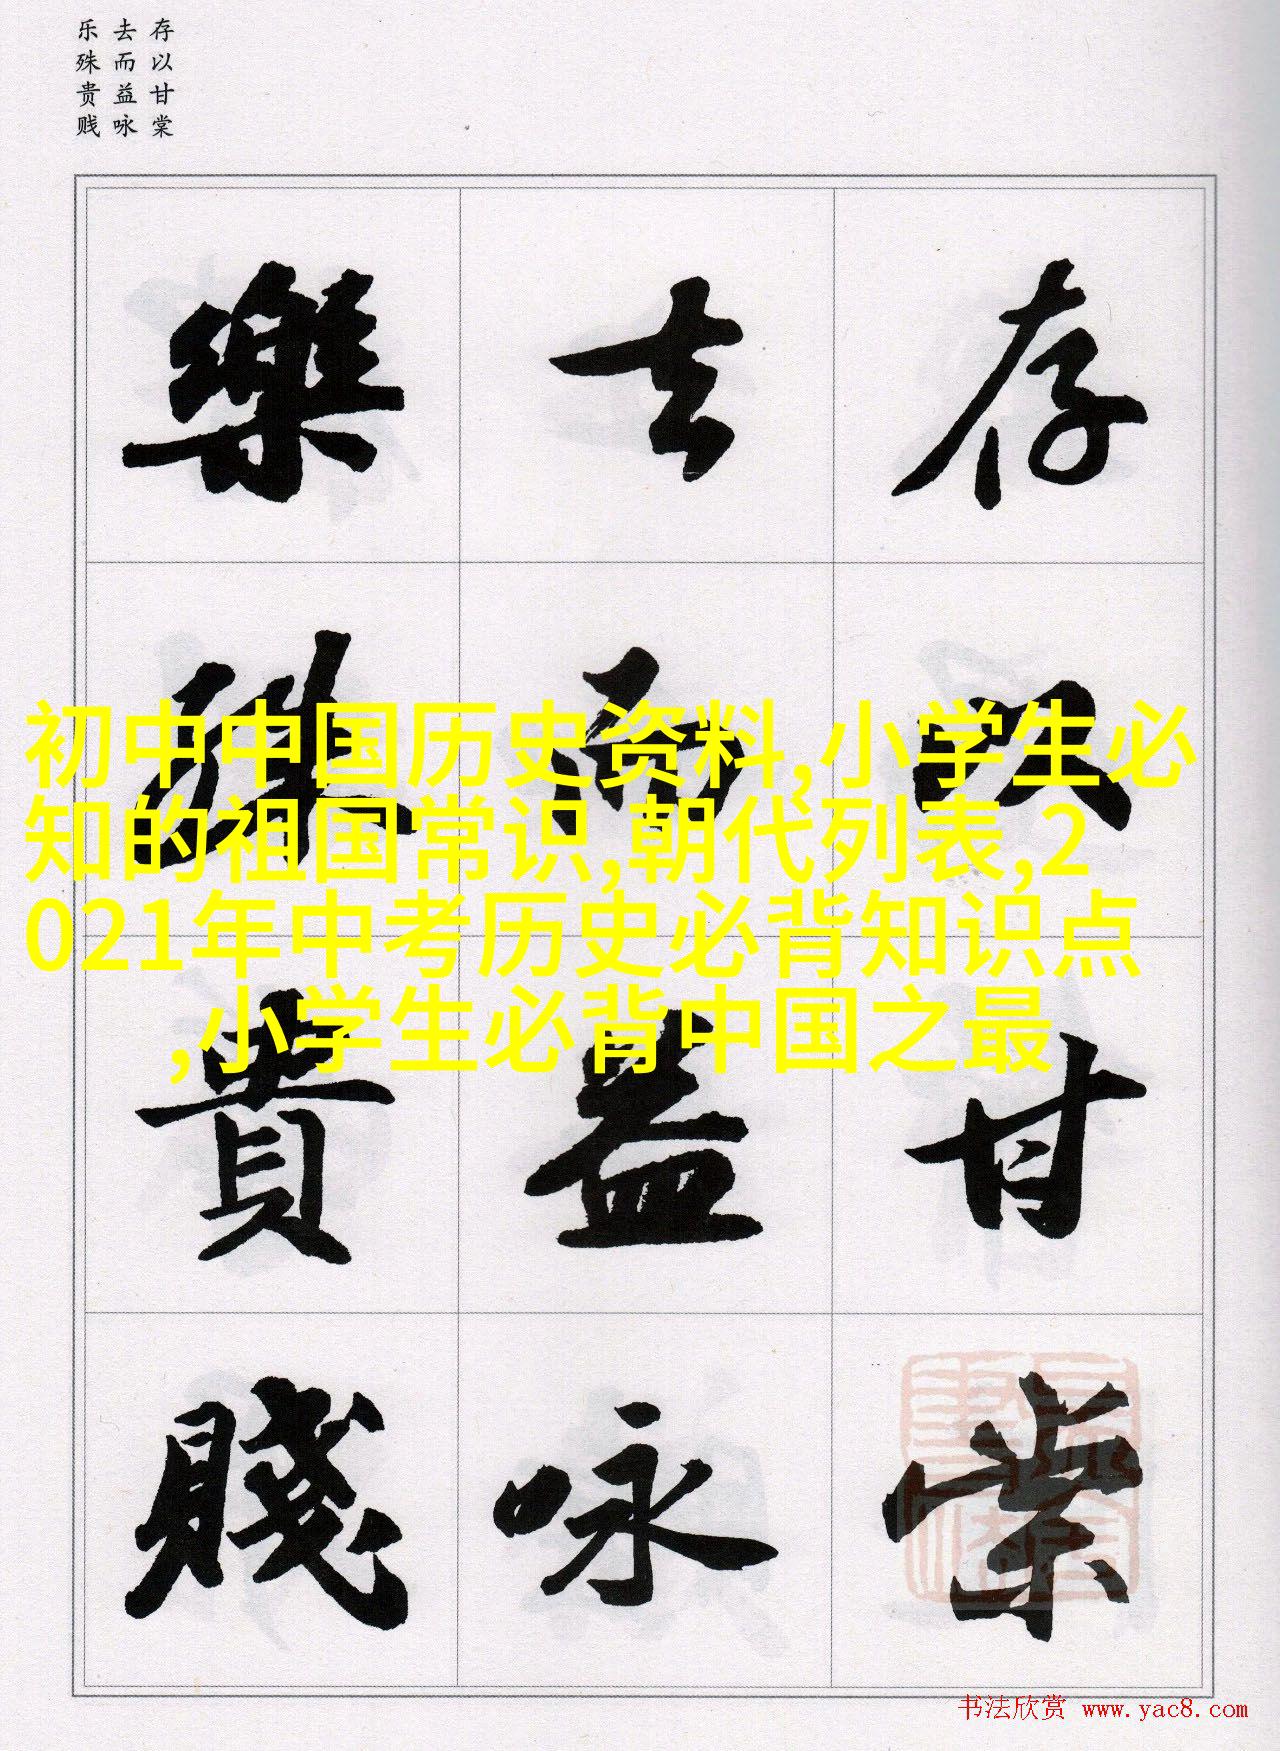 存以甘棠
去而益咏
乐殊贵贱
存以甘棠
去而益詠
樂殊貴賤
初中中国历史资料,小学生必
知的祖国常识,朝代列表,2
021年中考历史必背知识点
,小学生必背中国之最
书法欣赏 www.yac8.com